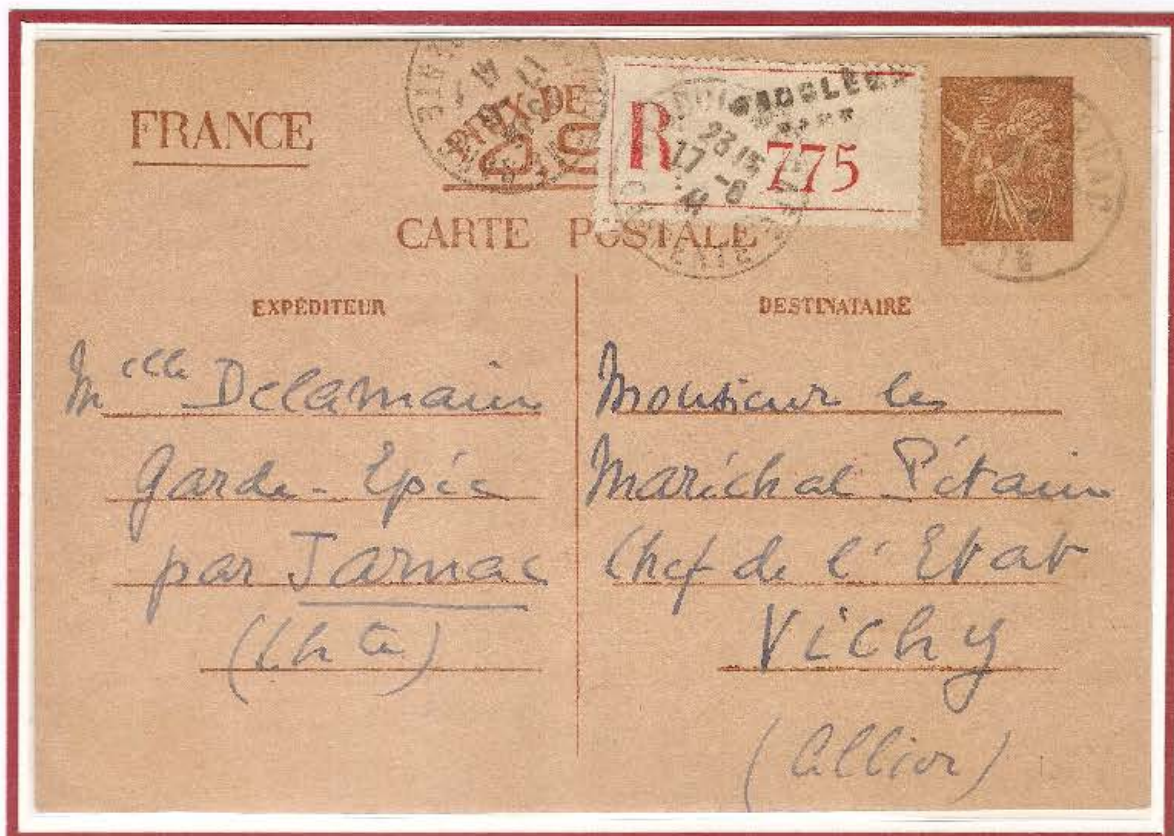 FRANCE
PRIX DE
R
ANGOULÊME
GARE
775
23 15
17 -6
41
CARTE POSTALE
EXPÉDITEUR
Melle Delamain
Garde-Epée
par Jarnac
(Chte)
DESTINATAIRE
Monsieur le
Maréchal Pétain
Chef de l'Etat
Vichy
(Allier)